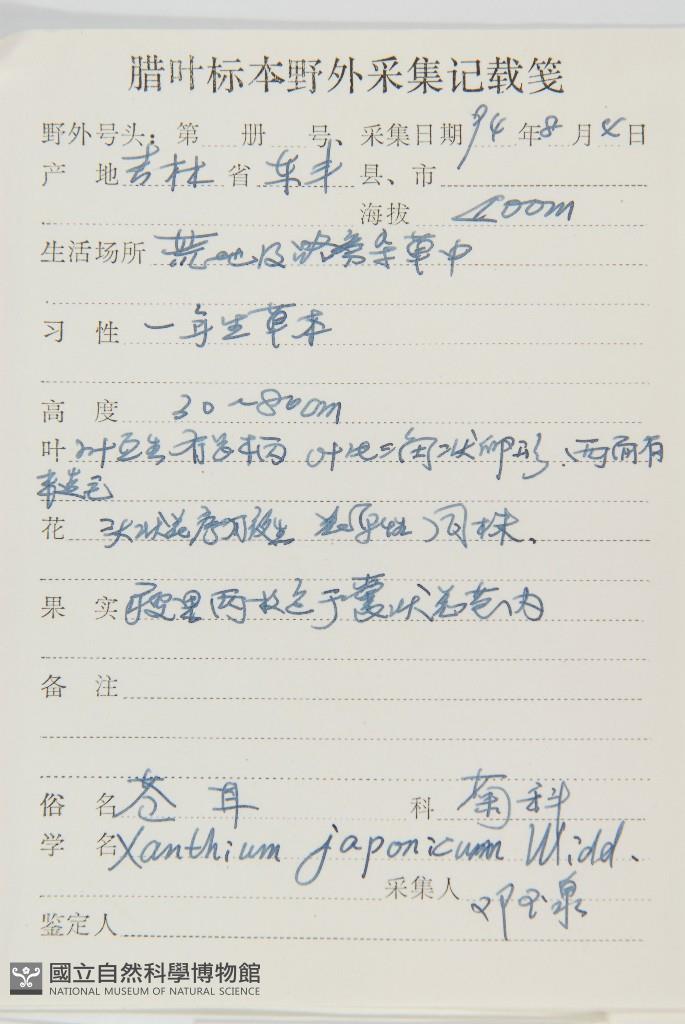 腊叶标本野外采集记载笺
野外号头:第 册 号、采集日期 94 年 8 月 4 日
产 地 吉林 省 东丰 县、市
海拔 400m
生活场所 荒地及路旁杂草中
习 性 一年生草本
高 度 30~80cm
叶 叶互生 有长柄 叶片三角状卵形、两面有
糙毛
花 头状花序 单性同株、
果 实 瘦果两枚包于囊状总苞内
备 注
俗 名 苍耳 科 菊科
学 名 Xanthium japonicum Widd.
采集人 邓玉泉
鉴定人
國立自然科學博物館
NATIONAL MUSEUM OF NATURAL SCIENCE